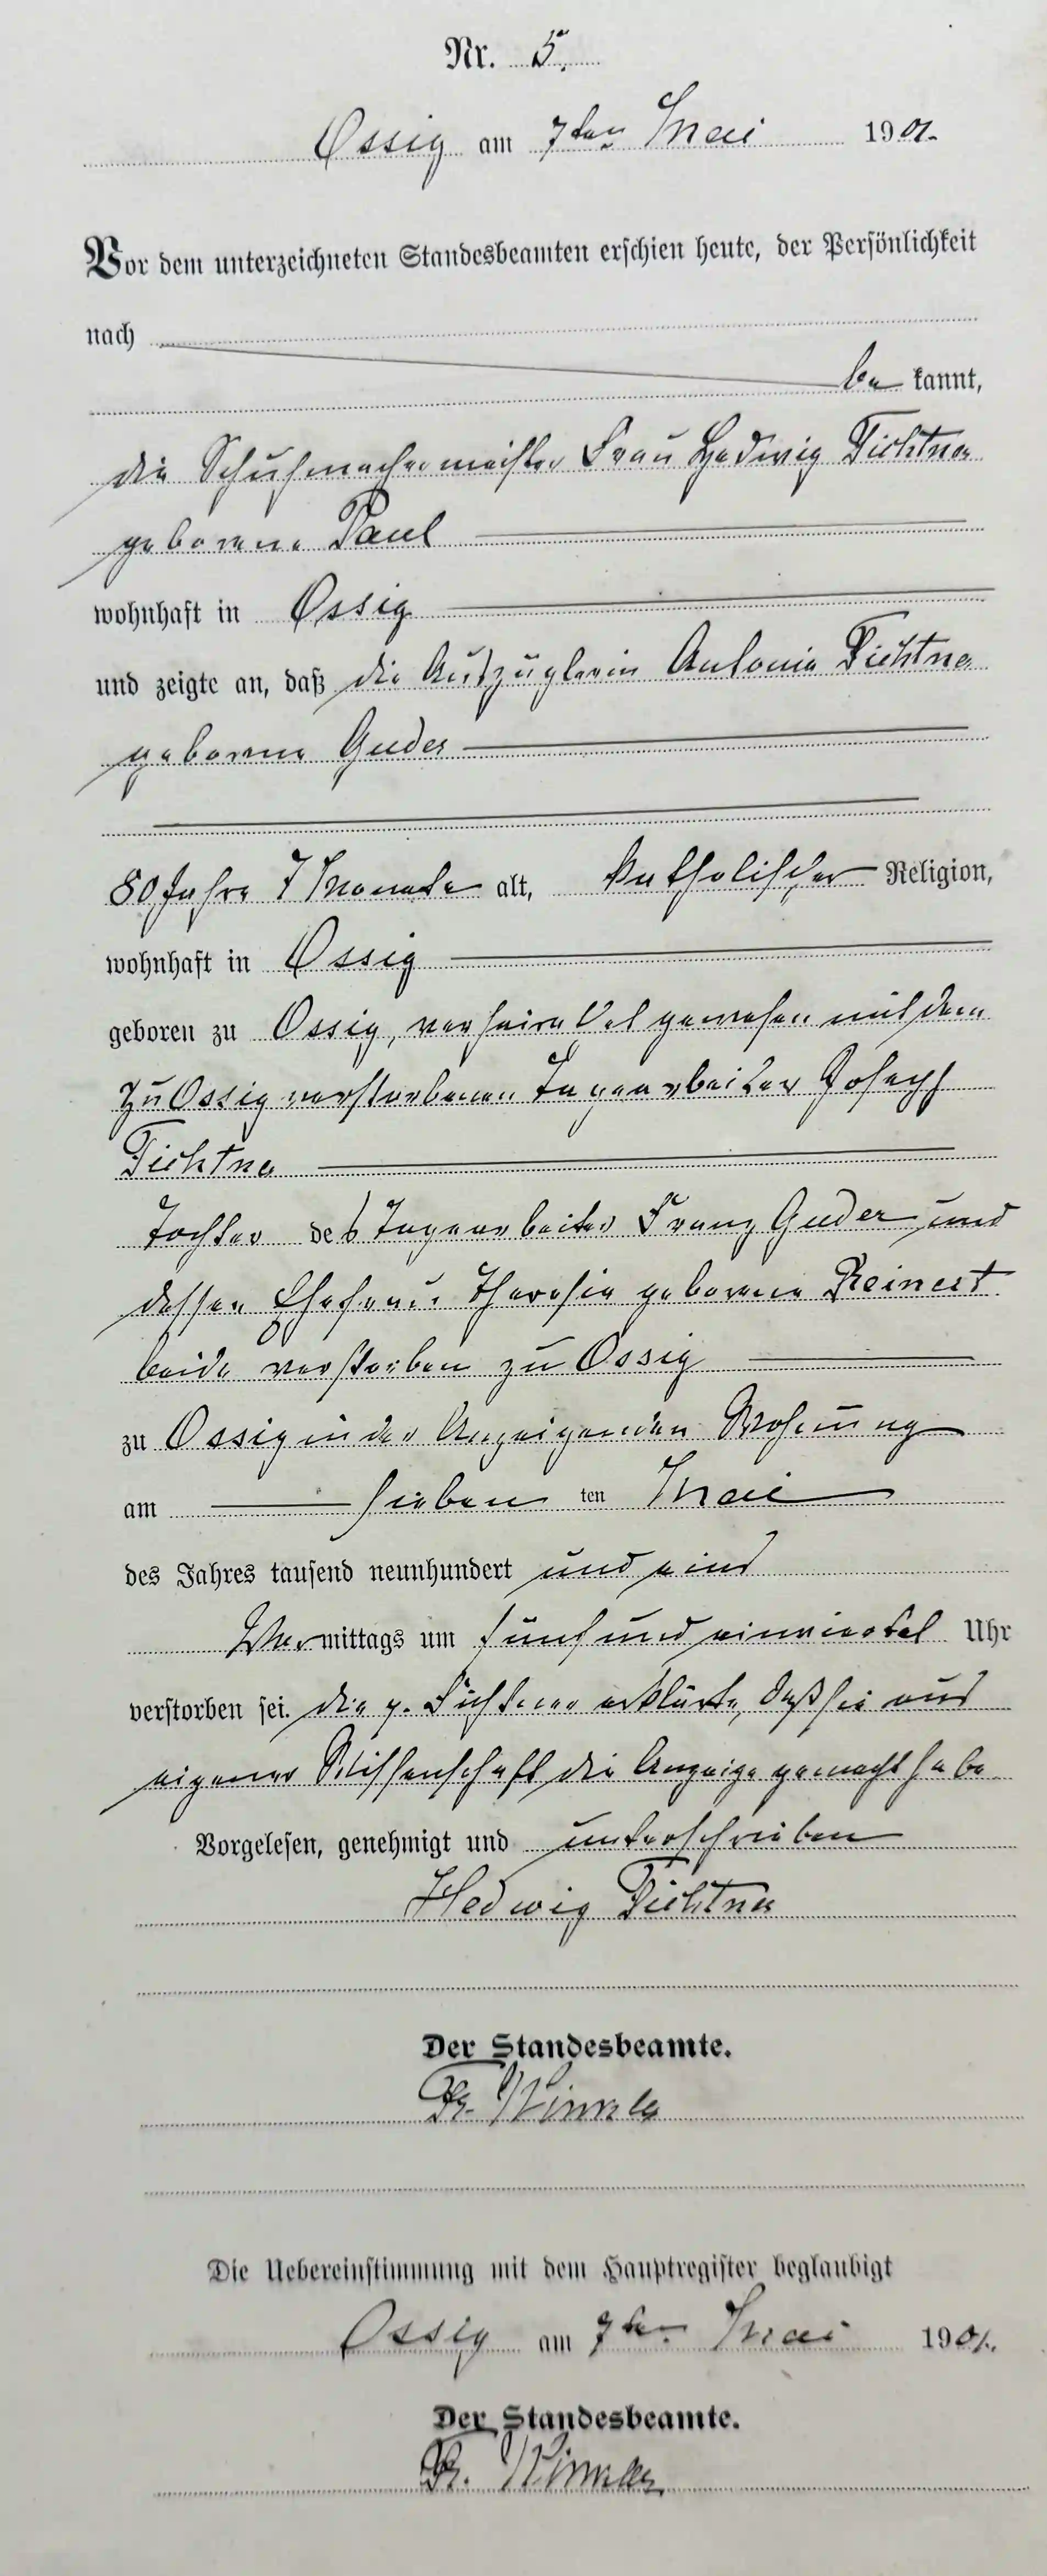 Nr. 5.
Ossig am 7ten Mai 1901.
Vor dem unterzeichneten Standesbeamten erschien heute, der Persönlichkeit
nach
be kannt,
die Schuhmachermeister Frau Hedwig Fichtner
geborene Paul
wohnhaft in Ossig
und zeigte an, daß die Auszüglerin Antonia Fichtner
geborne Guder
80 Jahre 7 Monate alt, katholischer Religion,
wohnhaft in Ossig
geboren zu Ossig, verheirathet gewesen mit dem
zu Ossig verstorbenen Tagearbeiter Joseph
Fichtner
Tochter des Tagearbeiter Franz Guder und
dessen Ehefrau Theresia geborene Reinert
beide verstorben zu Ossig
zu Ossig in der Anzeigenden Wohnung
am sieben ten Mai
des Jahres tausend neunhundert und eins
Vormittags um fünf und einviertel Uhr
verstorben sei. die p. Fichtner erklärte, daß sie aus
eigener Wissenschaft die Anzeige gemacht habe
Vorgelesen, genehmigt und unterschrieben
Hedwig Fichtner
Der Standesbeamte.
Winkler
Die Uebereinstimmung mit dem Hauptregister beglaubigt
Ossig am 7ten Mai 1901.
Der Standesbeamte.
Winkler